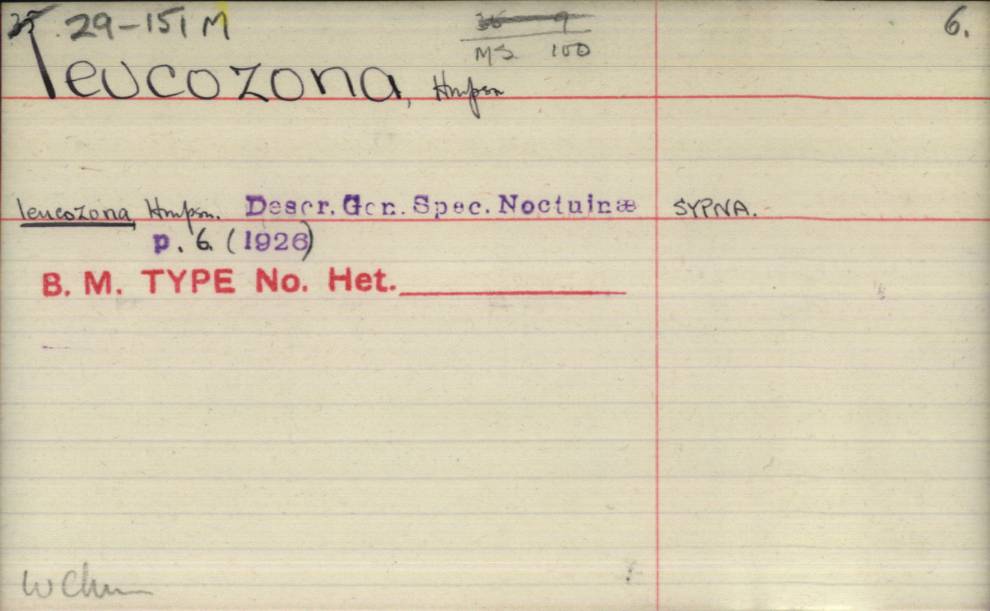 29-151 M
6.
MS 100
leucozona, Hmpsn
leucozona Hmpsn. Descr. Gen. Spec. Noctuinæ SYPNA.
p. 6. (1926)
B. M. TYPE No. Het.